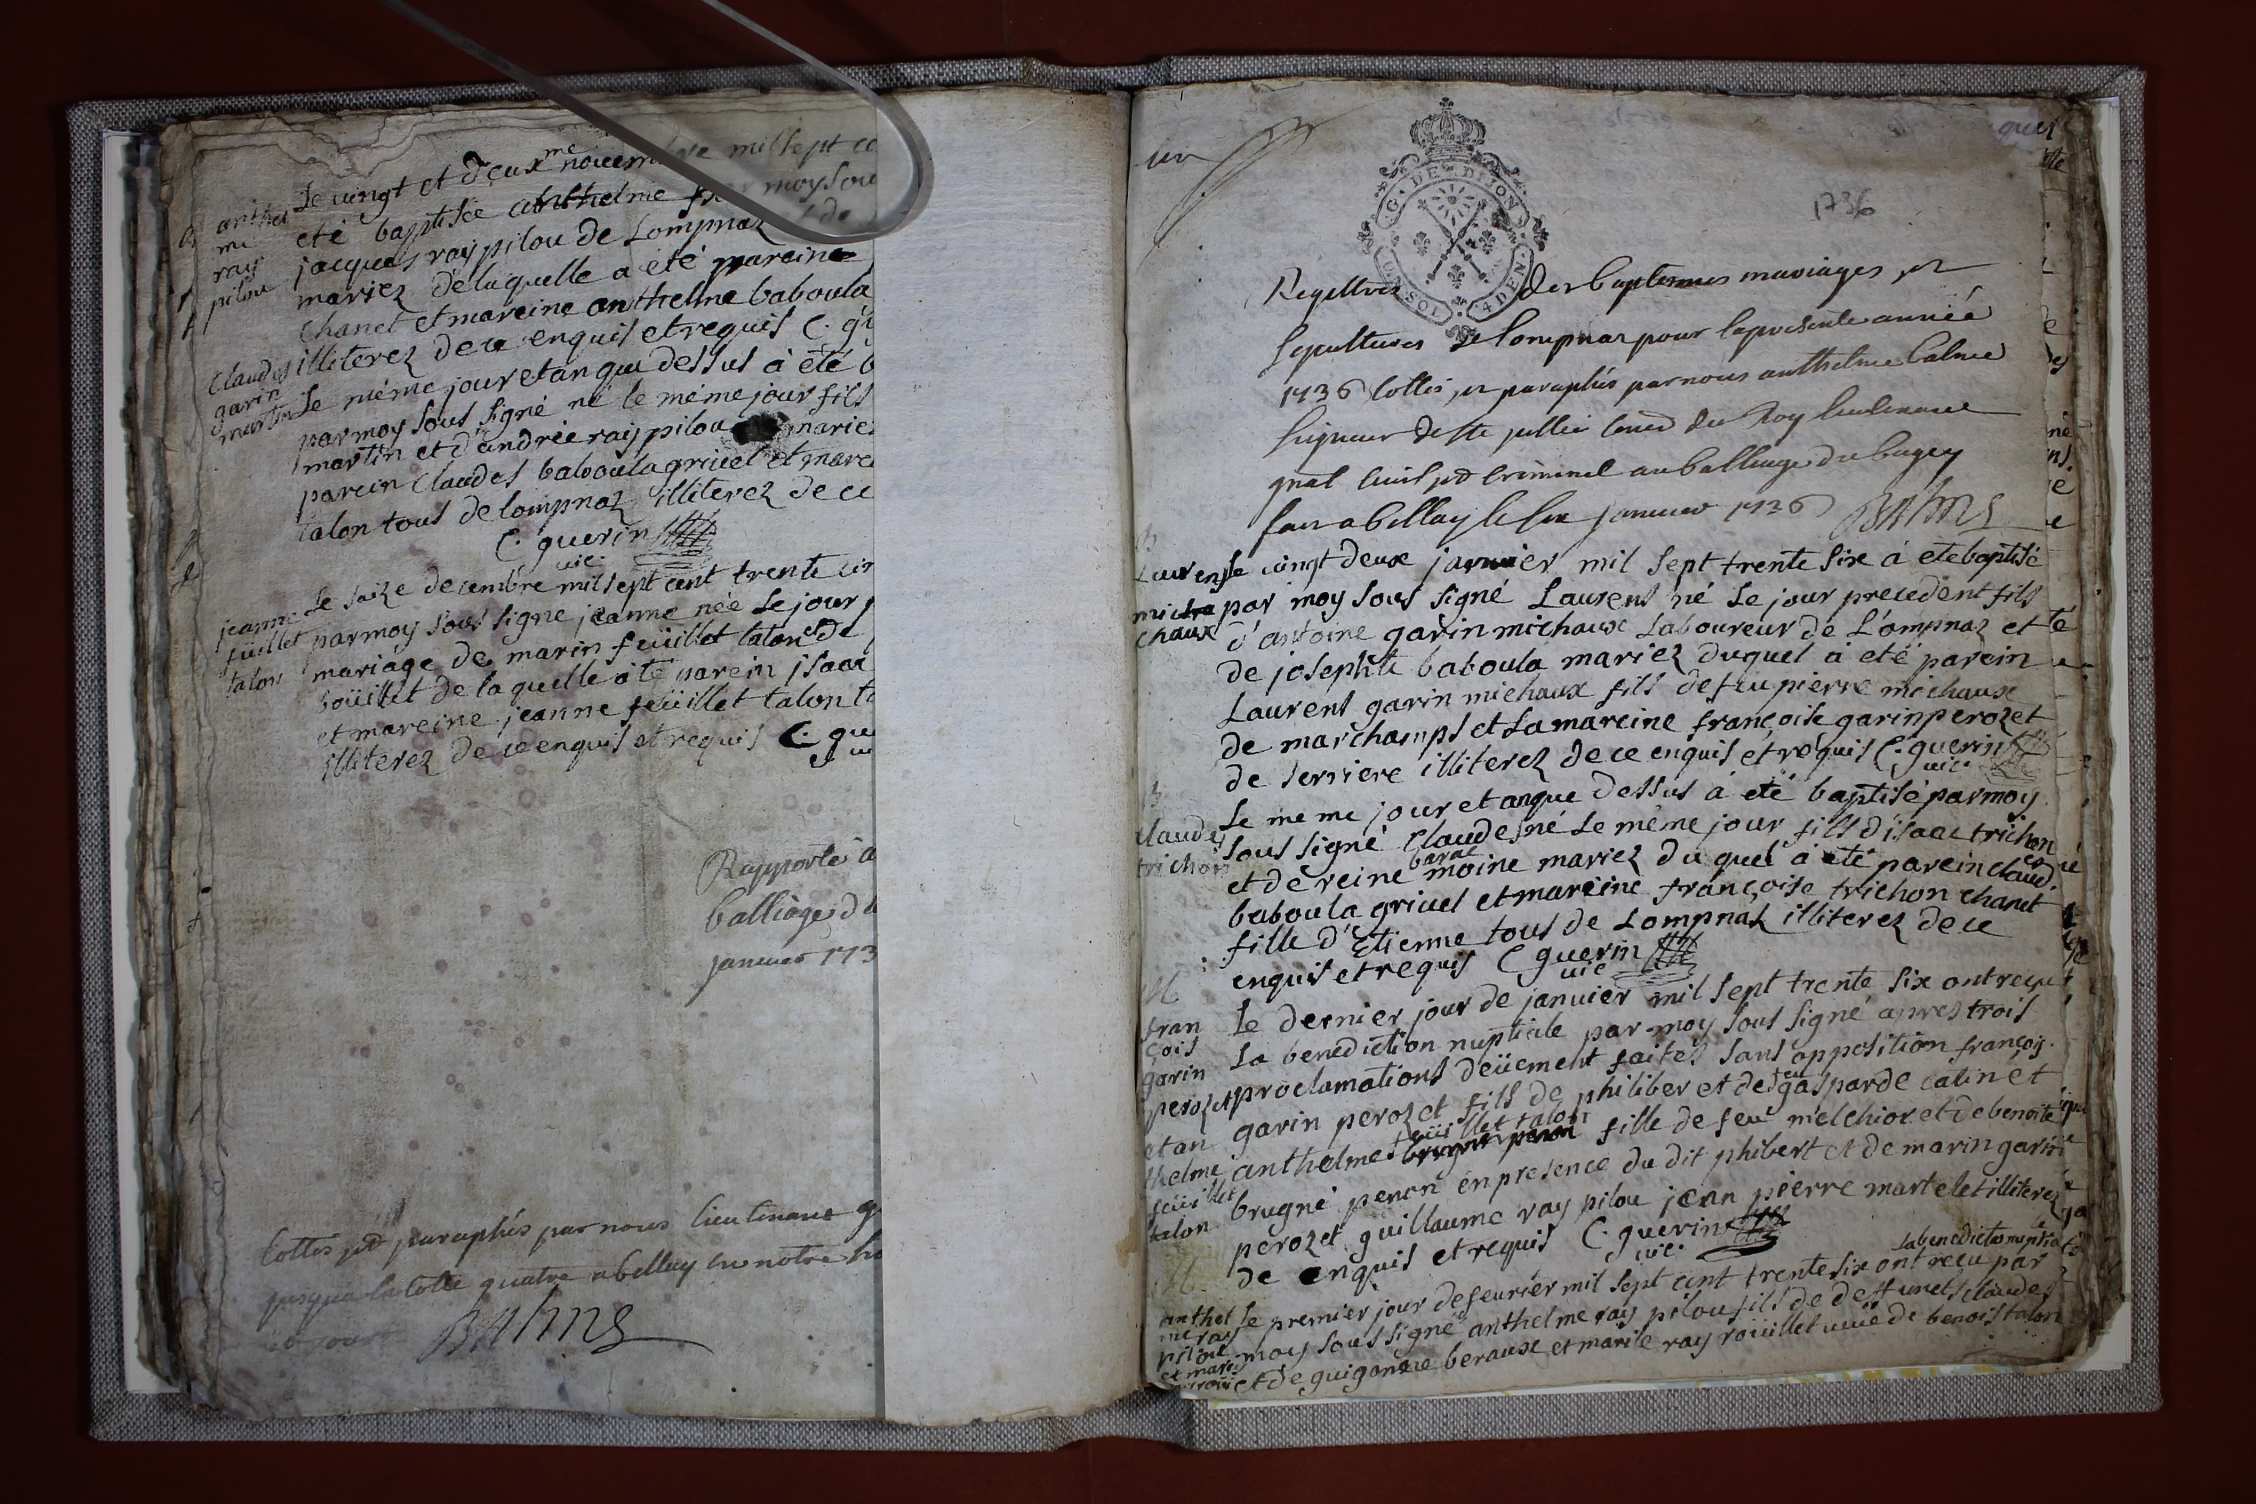 B
anthel
me
ray
pilou
Le vingt et deux me novembre mil sept ce
eté baptisée anthelme par moy sou
jacques ray pilou de Lompnaz et de
mariez de laquelle a eté pareine
Chanet et mareine anthelme baboula
illiterez de ce enquis et requis C. gu
Claudes
garin
martin
Le même jour et an que dessus à été b
par moy sous signé né le même jour fils
martin et d'andrée ray pilou mariez
parein Claudes baboula grivel et mare
talon tous de Lompnaz illiterez de ce
C. guerin
vic.
jeanne
füillet
talon
Le saize decembre mil sept cent trente cin
par moy sous signe jeanne née Le jour p
mariage de marin feüillet talon et de
boüillet de la quelle a été parein jsaac
et mareine jeanne feüillet talon to
illiterez de ce enquis et requis C. gu
Rapporté a
balliage d
janvier 173
Cottés et paraphés par nous lieutenant g
jusqua la cotte quatre a bellay en notre ho
BAlme
un
G. DE DIJON
UN SOL 4 DEN
1736
Registres des baptemes mariages et
sepultures de Lompnas pour la presente année
1736 Cottés et paraphés par nous anthelme balme
seigneur de Ste jullie Concer du Roy lieutenant
gnal civil et criminel au balliage du bugey
fait a bellay le six janvier 1736 BAlme
B
Laurens
michaux
Le vingt deux janvier mil sept trente six à eté baptisé
par moy sous signé Laurens né Le jour precedent fils
d'antoine garin michaux Laboureur de L'ompnaz et
de josephte baboula mariez duquel à eté parein
Laurens garin michaux fils de feu pierre michaux
de marchamps et La mareine françoise garin perozet
de serriere illiterez de ce enquis et requis C. guerin
vic.
B
Claudes
trichon
Le meme jour et an que dessus à eté baptisé par moy
sous signé Claudes né Le même jour fils d'isaac trichon
et de reine barac moine mariez du quel à eté parein Claudes
baboula grivel et mareine françoise trichon chanet
fille d'Etienne tous de Lompnaz illiterez de ce
enquis et requis C guerin
vic
M
fran
çois
garin
perozet
et an
thelme
feüillet
talon
Le dernier jour de janvier mil sept trente six ont reçu
La benediction nuptiale par moy sous signé apres trois
proclamations deüement faites sans opposition françois
garin perozet fils de philiber et de feu gasparde catinet
anthelme feüillet talon fille de feu melchior et de benoite
brugne penon en presence du dit phibert et de marin garin
perozet guillaume ray pilou jean pierre martelet illiterez
de enquis et requis C. guerin
vic.
M
anthel
me ray
pilou
et marie
La benediction nuptiale
Le premier jour de fevrier mil sept cent trente six ont reçu par
moy sous signé anthelme ray pilou fils de deffunts claudes
et de guigonne beraux et marie ray roüillet veuve de benois talon